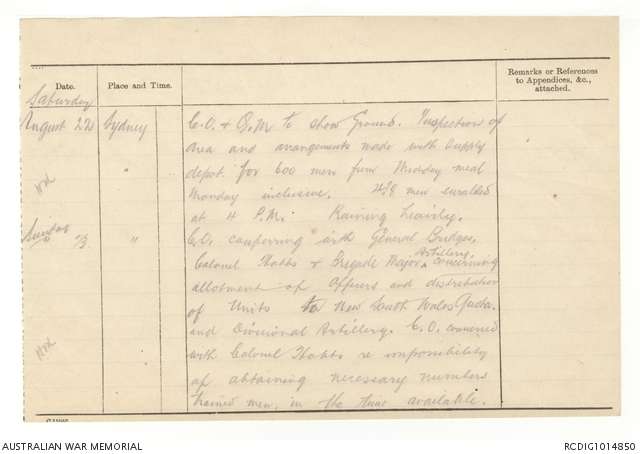 Date.
Place and Time.
Remarks or References
to Appendices, &c.,
attached.
Saturday
August 22
Sydney
C.O. + Q.M to show Ground. Inspection of
area and arrangements made with Supply
depot for 600 men from Midday meal
Monday inclusive. 428 men enrolled
at 4 P.M. Raining heavily.
Sunday
23
"
C.O. conferring with General Bridges,
Colonel Hobbs + Brigade Major Artillery concerning
allotment of Officers and distribution
of Units to New South Wales
and Divisional Artillery. C.O. conversed
with Colonel Hobbs re impossibility
of obtaining necessary numbers
trained men, in the time available.
AUSTRALIAN WAR MEMORIAL
RCDIG1014850